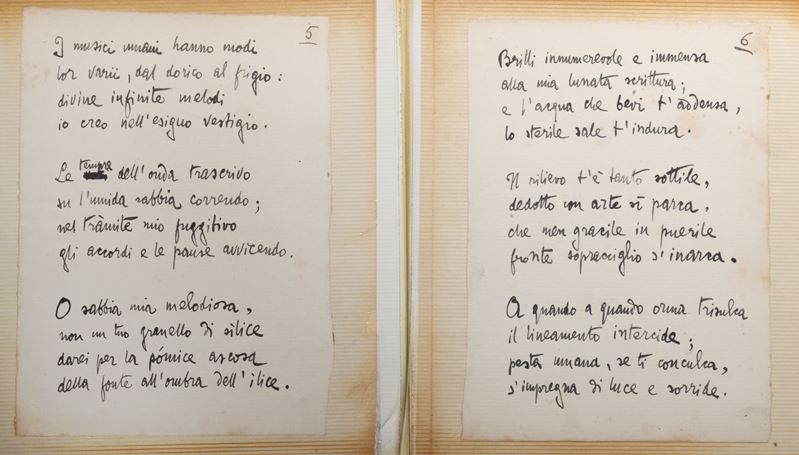 5
I musici umani hanno modi
lor varii, dal dorico al frigio:
divine infinite melodi
io creo nell'esiguo vestigio.
Le tempre dell'onda trascrivo
su l'umida sabbia correndo;
nel tràmite mio fuggitivo
gli accordi e le pause avvicendo.
O sabbia mia melodiosa,
non un tuo granello di silice
darei per la pómice ascosa
della fonte all'ombra dell'ilice.
6
Brilli innumerevole e immensa
alla mia lunata scrittura;
e l'acqua che bevi t'addensa,
lo sterile sale t'indura.
Il rilievo t'è tanto sottile,
dedotto con arte sì parca,
che men gracile in puerile
fronte sopracciglio s'inarca.
A quando a quando orma trisulca
il lineamento intercide;
pesta umana, se ti conculca,
s'impregna di luce e sorride.